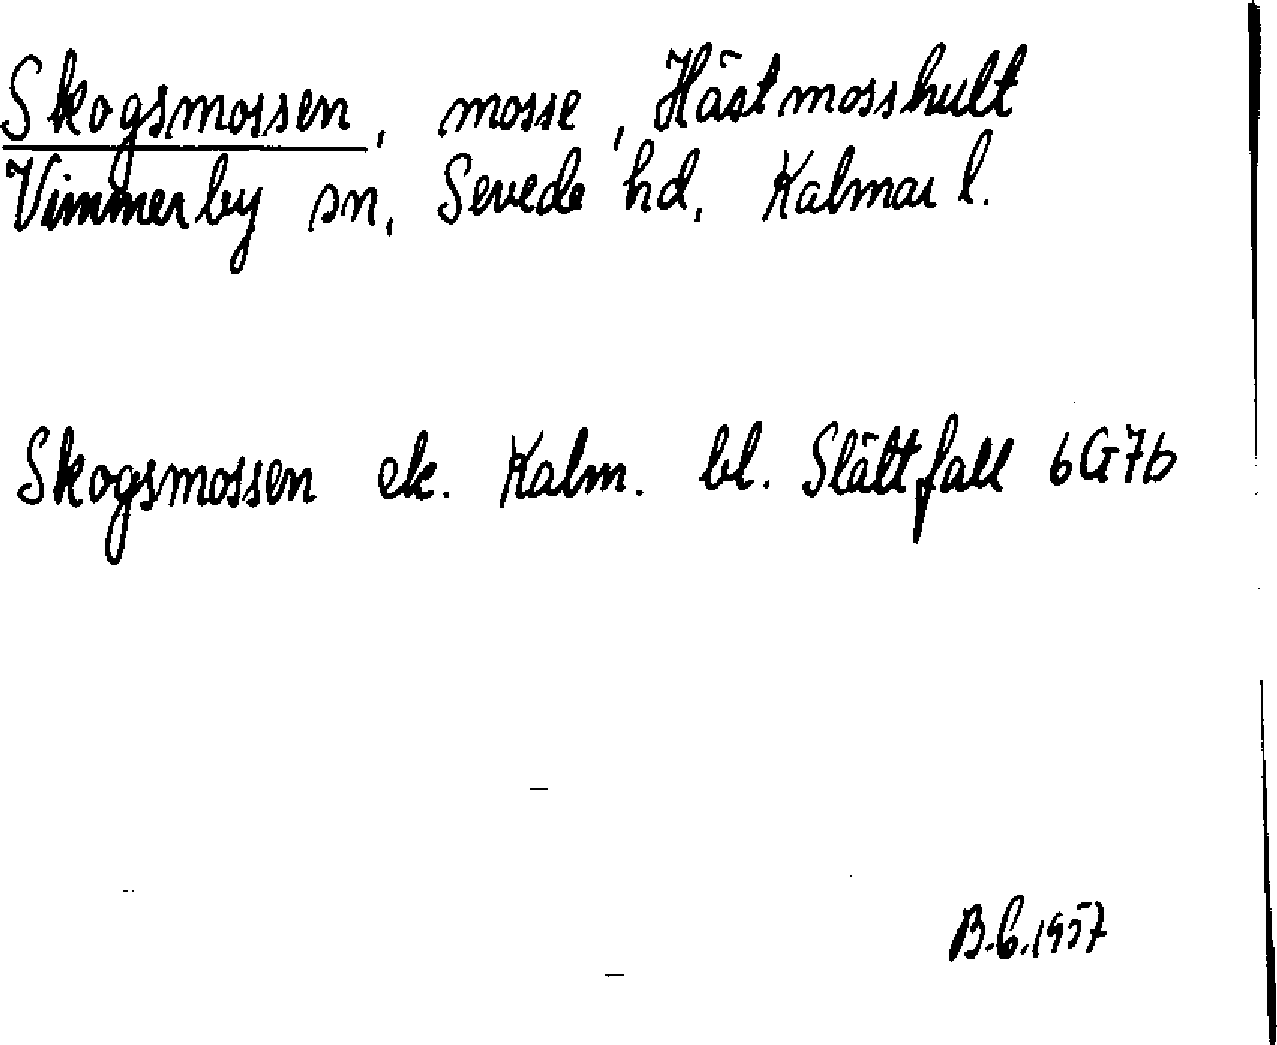 Skogsmossen, mosse, Hästmosshult
Vimmerby sn, Sevede hd, Kalmar l.
Skogsmossen ek. Kalm. bl. Slättfall 6G7b
B.C.1957